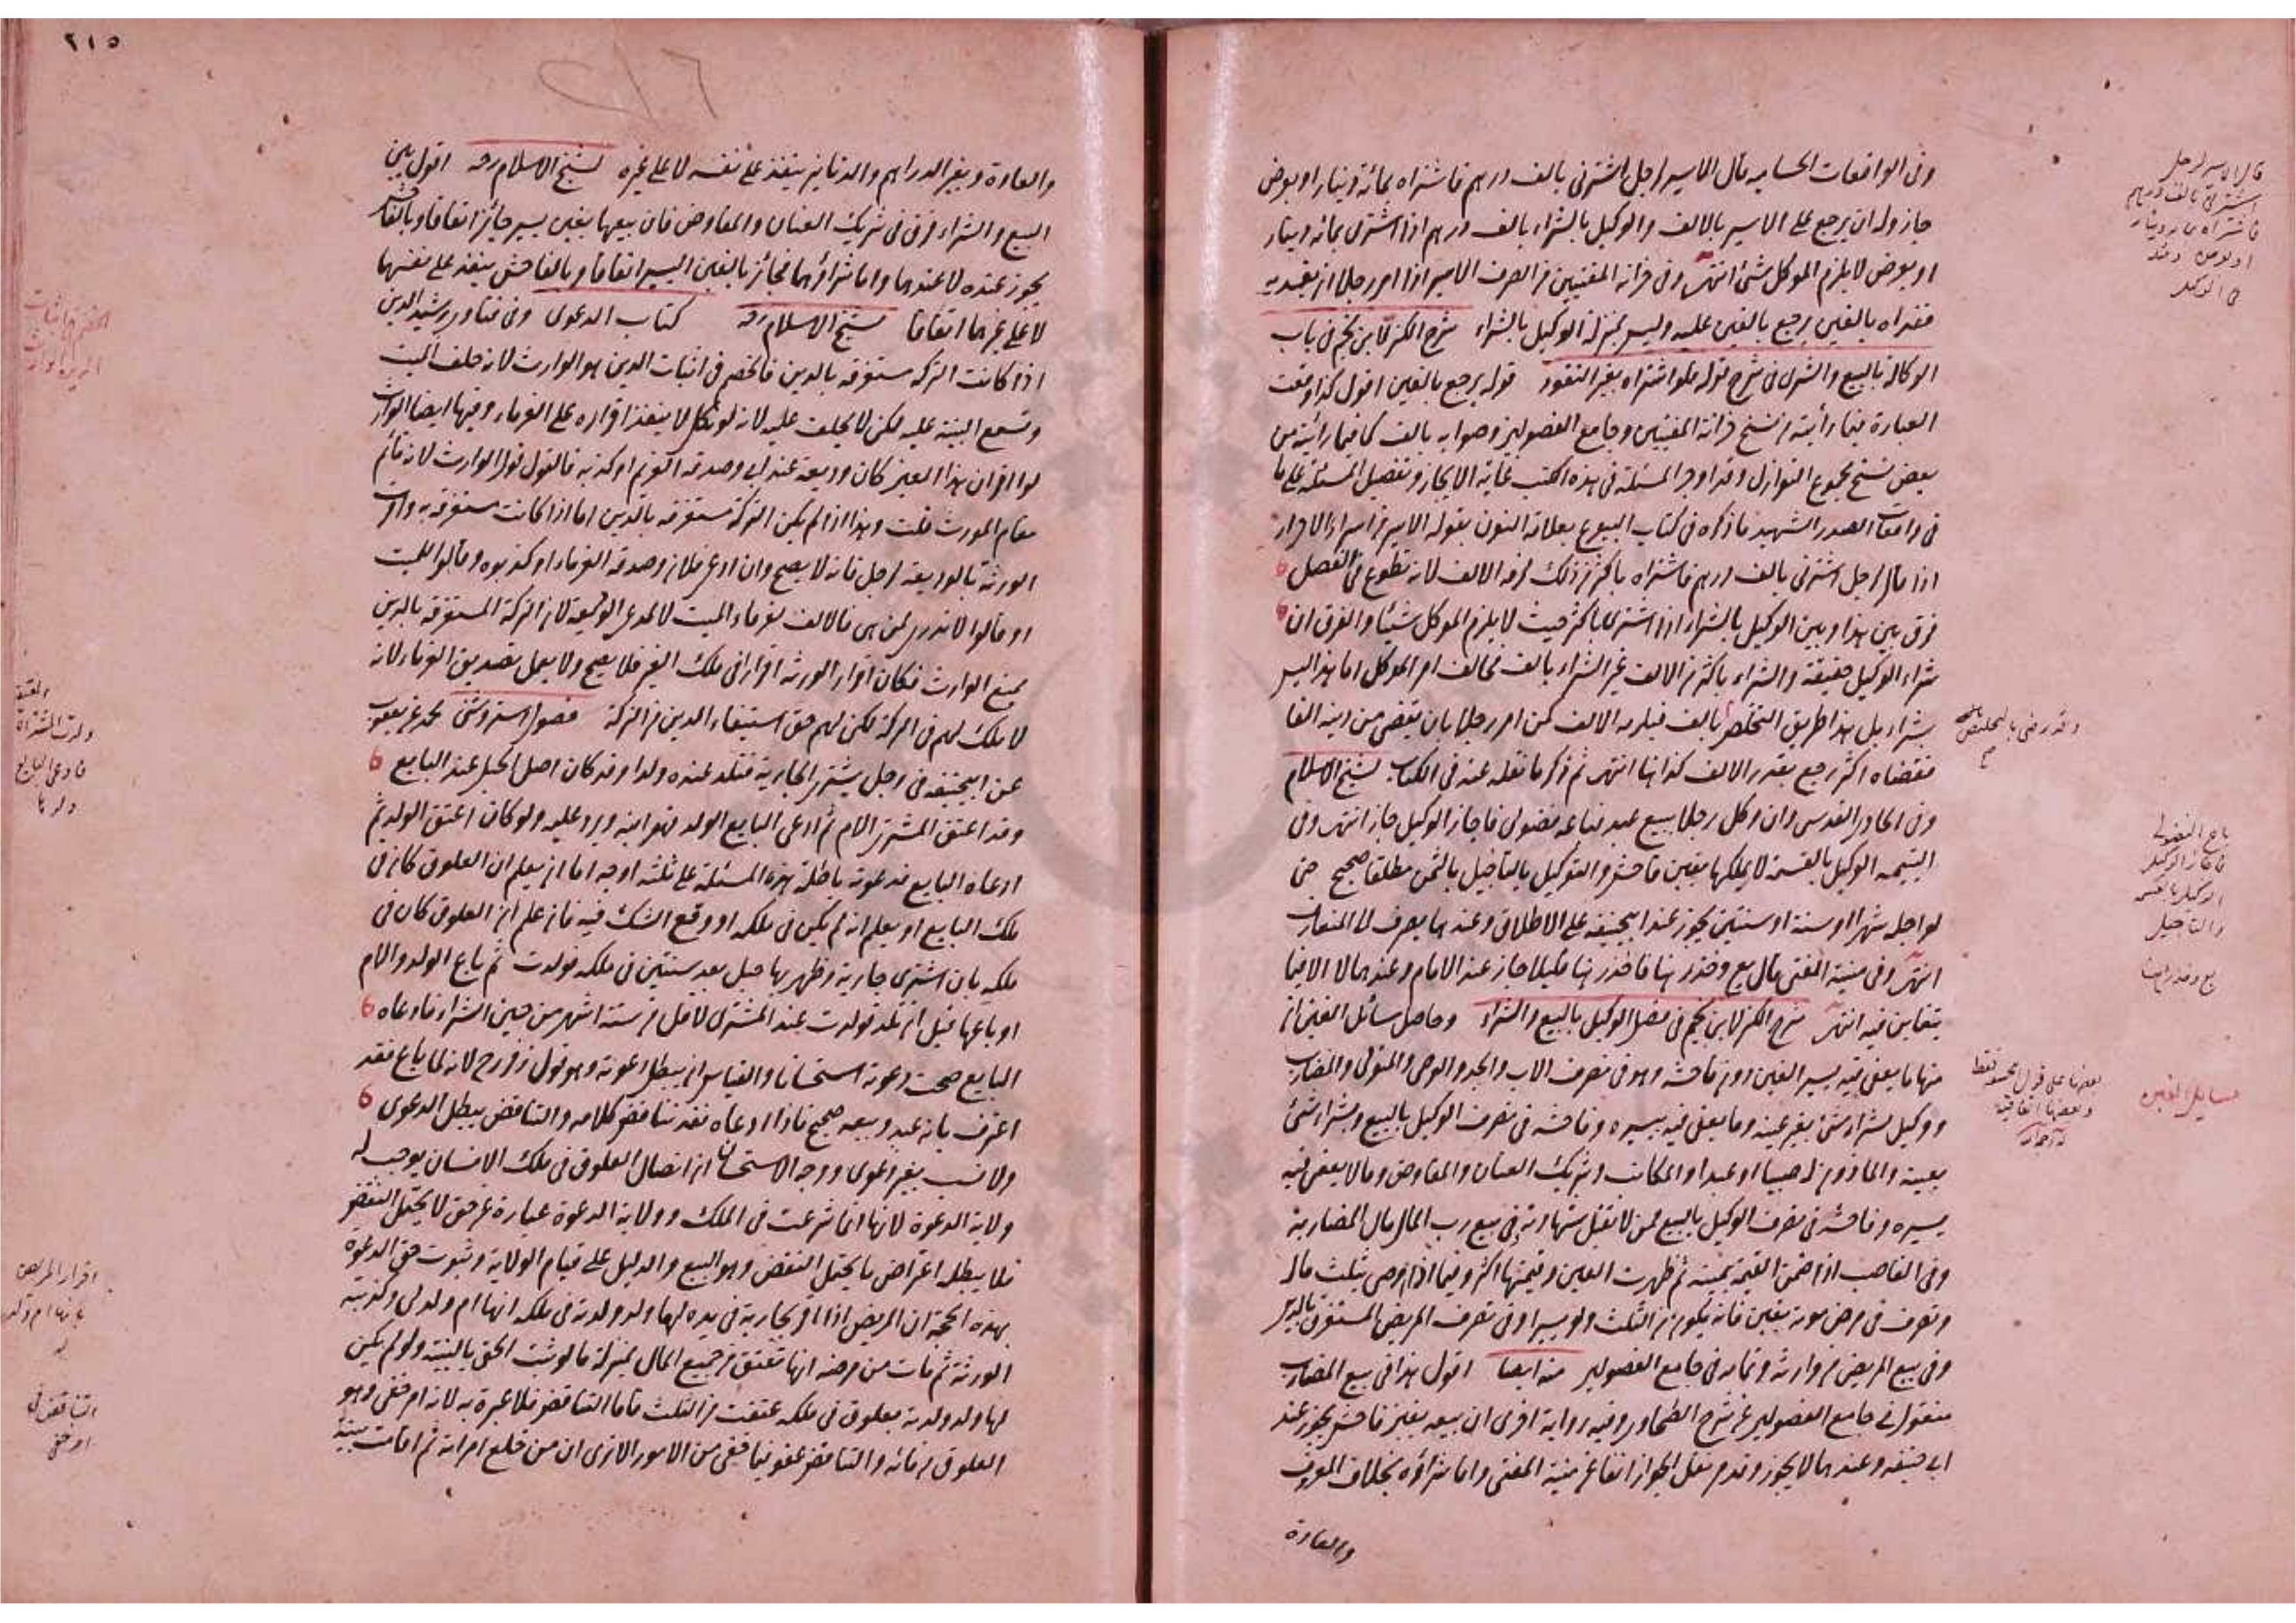 وفى الواقعات الحساميه قال الاسير لرجل اشترنى بالف درهم فاشتراه بمائة دينار او بعرض
جاز وله ان يرجع على الاسير بالالف والوكيل بالشراء بالف درهم اذا اشترى بمائه دينار
او بعرض لا يلزم الموكل شئ انتهى وفى خزانة المفتيين من الصرف الاسير اذا امر رجلا ان يفديه
ففداه بالفين يرجع بالفين عليه وليس بمنزلة الوكيل بالشراء شرح الكنز لابن نجيم فى باب
الوكالة بالبيع والشرى فى شرح قوله فلو اشتراه بغير النقود قوله يرجع بالفين اقول كذا وقعت
العبارة فيما رأيته من نسخ خزانة المفتيين وجامع الفصولين وصوابه بالف كما فيما رأيته من
بعض نسخ مجموع النوازل وقد اوجز المسئلة فى هذه الكتب غاية الايجاز وتفصيل المسئلة على ما
فى واقعات الصدر الشهيد ما ذكره فى كتاب البيوع بعلامة النون بقوله الاسير من اسراء الاحرار
اذا قال لرجل اشترنى بالف درهم فاشتراه باكثر من ذلك لزمه الالف لانه تطوع فى الفضل
فرق بين هذا وبين الوكيل بالشراء اذا اشترى باكثر حيث لا يلزم الموكل شيئا والفرق ان
شراء الوكيل حقيقة والشراء باكثر من الالف غير الشراء بالف فخالف امر الموكل اما هذا ليس
بشراء بل هذا طريق التخلص بالف فيلزمه الالف كمن امر رجلا بان يقضى من دينه الفا
فقضاه اكثر رجع بقدر الالف كذا هنا انتهى ثم ذكر ما نقله عنه فى الكتاب لشيخ الاسلام
وفى الحاوى القدسى وان وكل رجلا ببيع عبد فباعه فضولى فاجاز الوكيل جاز انتهى وفى
اليتيمه الوكيل بالقسمة لا يملكها بغبن فاحش والتوكيل بالتاجيل بالثمن مطلقا صحيح حتى
لو اجله شهرا او سنة او سنتين يجوز عند ابيحنيفه على الاطلاق وعندهما يصرف الى المتعارف
انتهى وفى منية المفتى قال بع وخذ رهنا فاخذ رهنا قليلا جاز عند الامام وعندهما لا الا فيما
يتغابن فيه انتهى شرح الكنز لابن نجيم فى فصل الوكيل بالبيع والشراء وحاصل مسائل الغبن ان
منها ما يعفى فيه يسير الغبن دون فاحشه وهو فى تصرف الاب والجد والوصى والمتولى والمضارب
ووكيل بشراء شئ بغير عينه وما يعفى فيه يسيره وفاحشه فى تصرف الوكيل بالبيع وبشراء شئ
بعينه والماذون له صبيا او عبدا والمكاتب وشريك العنان والمفاوض وما لا يعفى فيه
يسيره وفاحشه فى تصرف الوكيل بالبيع ممن لا تقبل شهادته وفى بيع رب المال مال المضاربة
وفى الغاصب اذا ضمن القيمة بيمينه ثم ظهرت العين وقيمتها اكثر وفيما اذا اوصى بثلث ماله
وتصرف فى مرض موته بغبن فانه يكون من الثلث ولو يسيرا وفى تصرف المريض المستغرق بالدين
وفى بيع المريض من وارثه وتمامه فى جامع الفصولين منه ايضا اقول هذا فى بيع المضارب
منقول فى جامع الفصولين عن شرح الطحاوى وفيه رواية اخرى ان بيعه بغبن فاحش يجوز عند
ابى حنيفه وعندهما لا يجوز وقدم نقل الجواز اتفاقا عن منية المفتى واما شراؤه بخلاف المعروف
والعادة
قال الاسير لرجل
اشترنى بالف درهم
فاشتراه بمائة دينار
وقد رضى بالتخليص
باع الفضولى
فاجاز الوكيل
الوكيل بالقسمة
والتاجيل
بع وخذ رهنا
مسايل الغبن
٢١٥
والعادة وبغير الدراهم والدنانير ينفذ على نفسه لا على غيره لشيخ الاسلام رحه اقول بين
البيع والشراء فرق فى شريك العنان والمفاوض فان بيعها بغبن يسير جائز اتفاقا وبالفاحش
يجوز عنده لا عندهما واما شراؤهما فجائز بالغبن اليسير اتفاقا وبالفاحش ينفذ على نفسهما
لا على غيرهما اتفاقا لشيخ الاسلام رحه كتاب الدعوى وفى فتاوى رشيد الدين
اذا كانت التركه مستغرقه بالدين فالخصم فى اثبات الدين هو الوارث لانه خلف الميت
وتسمع البينة عليه لكن لا يحلف عليه لانه لو نكل لا ينفذ اقراره على الغرماء وفيها ايضا الوارث
لو اقر ان هذا العين كان وديعة عند ابى وصدقه الغريم او كذبه فالقول قول الوارث لانه قائم
مقام المورث قلت وهذا اذا لم يكن التركة مستغرقة بالدين اما اذا كانت مستغرقه به واقرت
الورثة بالوديعة لرجل فانه لا يصح وان ادعى فلان وصدقه الغرماء او كذبوه وقالوا للميت
او قالوا لا ندرى لمن هى فالالف لغرماء الميت لا لمدعى الوديعة لان التركة المستغرقة بالدين
يمنع الوارث فكان اقرار الورثه اقرارا فى ملك الغير فلا يصح ولا يعمل تصديق الغرماء لانه
لا ملك لهم فى التركة لكن لهم حق استيفاء الدين من التركة فصول استروشنى محمد عن يعقوب
عن ابيحنيفه فى رجل يشترى الجارية فتلد عنده ولدا وقد كان اصل الحبل عند البايع
وقد اعتق المشترى الام ثم ادعى البايع الولد فهو ابنه ويرد عليه ولو كان اعتق الولد ثم
ادعاه البايع فدعوته باطلة هذه المسئلة على ثلثه اوجه اما ان يعلم ان العلوق كان فى
ملك البايع او يعلم انه لم يكن فى ملكه او وقع الشك فيه فان علم ان العلوق كان فى
ملكه بان اشترى جارية وظهر بها حبل بعد سنتين فى ملكه فولدت ثم باع الولد والام
او باعها قبل ان تلد فولدت عند المشترى لاقل من ستة اشهر من حين الشراء فادعاه
البايع صحت دعوته استحسانا والقياس ان يبطل دعوته وهو قول زفر رح لانه لما باع فقد
اعترف بانه عبد وبيعه صحيح فاذا ادعاه فقد تناقض كلامه والتناقض يبطل الدعوى
ولا نسب بغير دعوى ووجه الاستحسان ان اتصال العلوق فى ملك الانسان يوجب له
ولاية الدعوة لانها انما شرعت فى الملك وولاية الدعوة عبارة عن حق لا يحتمل النقض
فلا يبطله اعتراض ما يحتمل النقض وهو البيع والدليل على قيام الولاية وثبوت حق الدعوة
بهذه الحجة ان المريض اذا اقر بجارية فى يده لها ولد ولدته فى ملكه انها ام ولدى وكذبته
الورثة ثم مات من مرضه انها تعتق من جميع المال بمنزلة ما لو ثبت الحق بالبينة ولو لم يكن
لها ولد ولدته بعلوق فى ملكه عتقت من الثلث فاما التناقض فلا عبرة به لانه امر خفى وهو
العلوق من مائه والتناقض عفو فيما خفى من الامور الا ترى ان من خلع امراته ثم اقامت بينة
ولدت المشتراة
فادعى البايع
ولدها
اقرار المريض
بانها ام ولد
له
التناقض فى
امر خفى